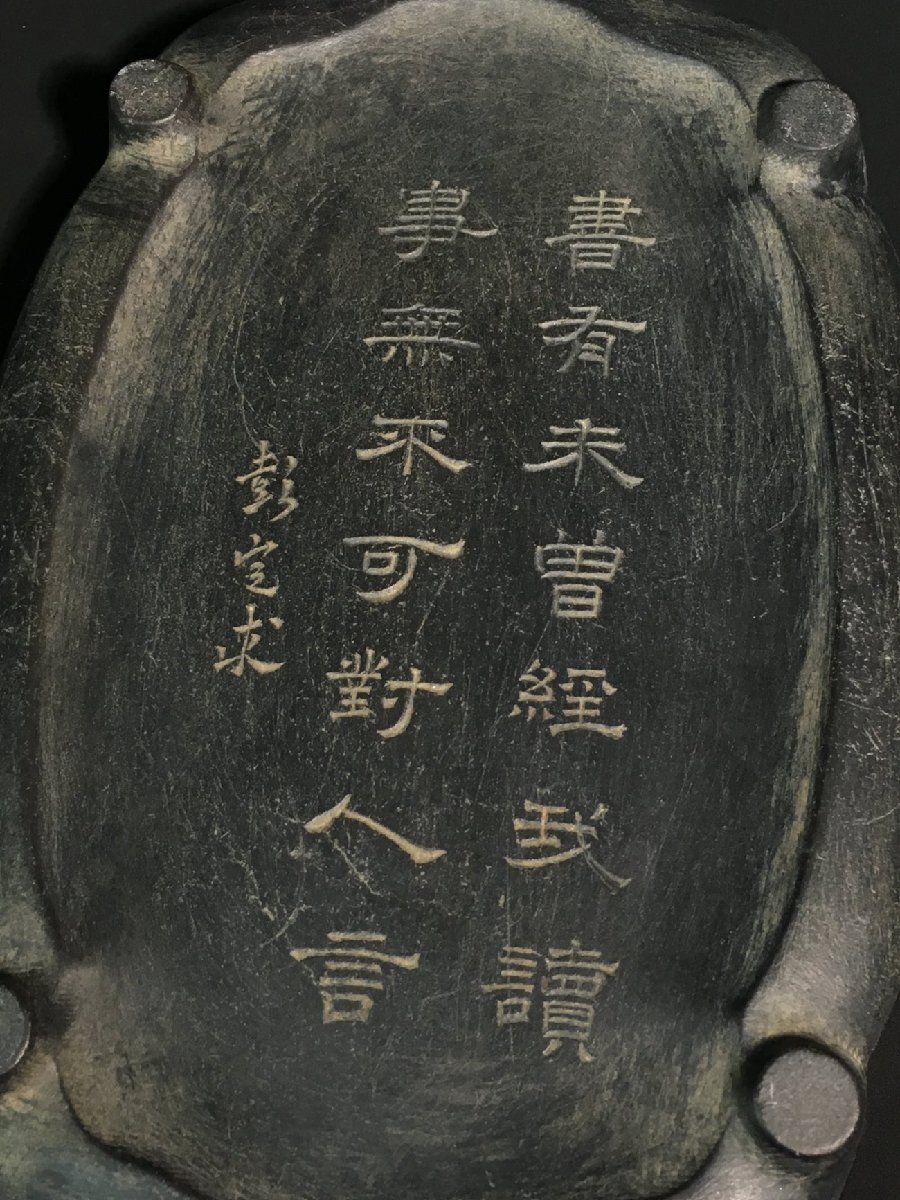 書有未曾經我讀
事無不可對人言
彭定求